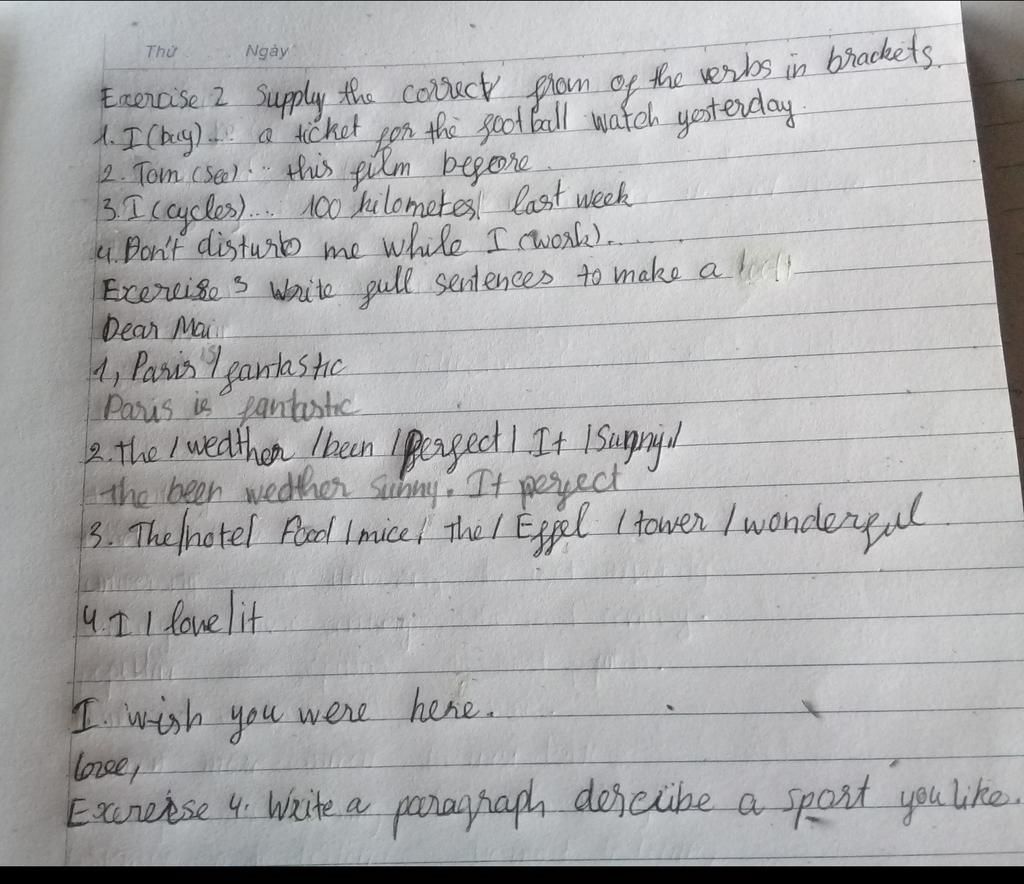 Thứ Ngày
Exercise 2 Supply the correct from of the verbs in brackets.
1. I (buy)... a ticket for the football watch yesterday.
2. Tom (see)... this film before.
3. I (cycles)... 100 kilometes last week
4. Don't disturb me while I (work)....
Exercise 3 Write full sentences to make a
Dear Mai
1, Paris / fantastic
Paris is fantastic
2. the / wedther / been / perfect / It / Sunny./
the been wedther sunny. It perfect
3. The/hotel Food / mice / the / Effel / tower / wonderful.
4. I / love/it
I wish you were here.
love,
Exercise 4. Write a paragraph describe a sport you like.